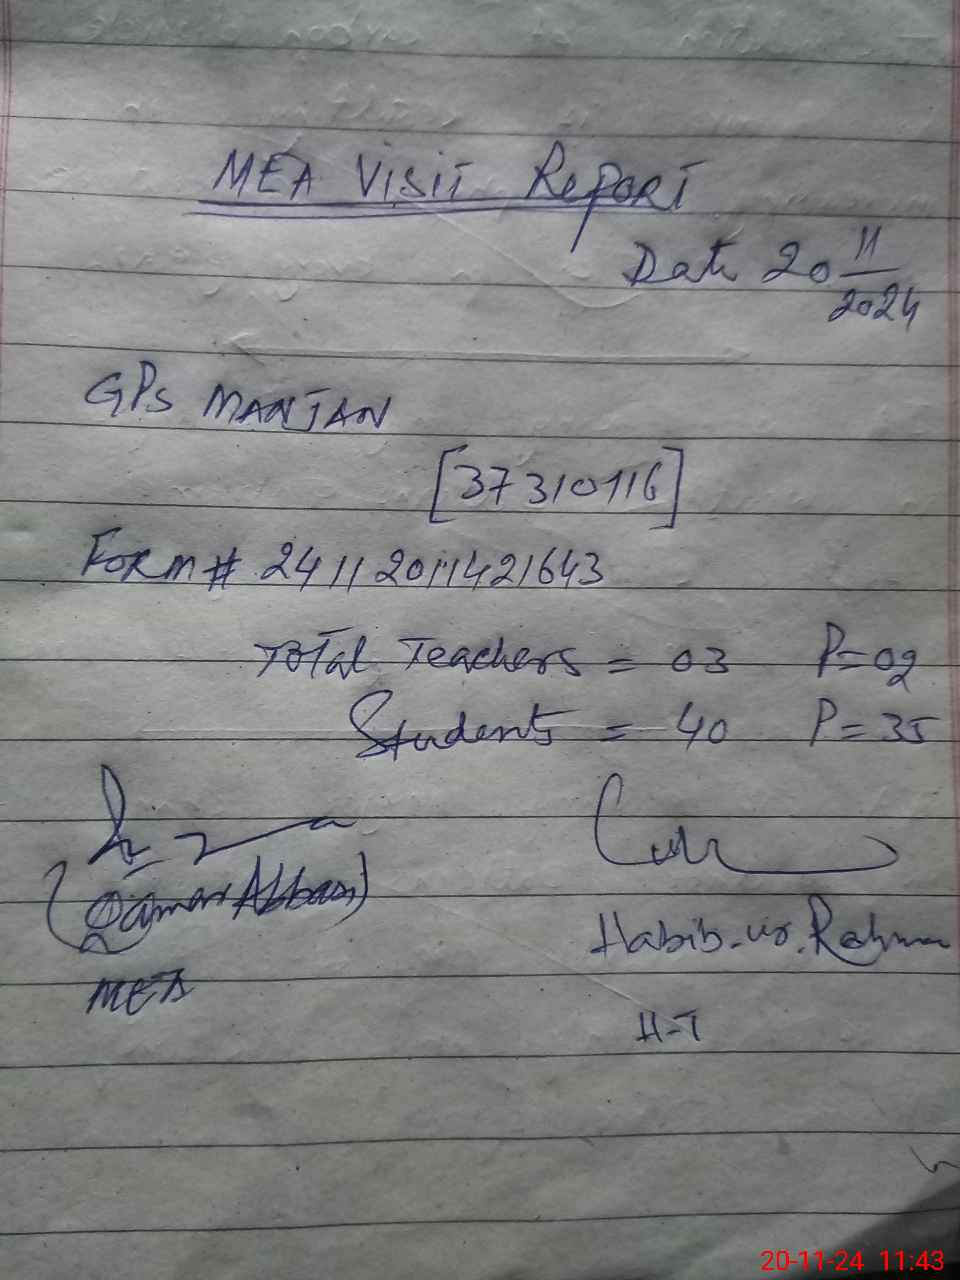 MEA Visit Report
Date 20 11/2024
GPS MANJAN
[37310116]
Form # 24112011421643
Total Teachers = 03 P=02
Students = 40 P=35
(Qamar Abbas)
Habib-ur-Rehman
MEA
H-T
20-11-24 11:43